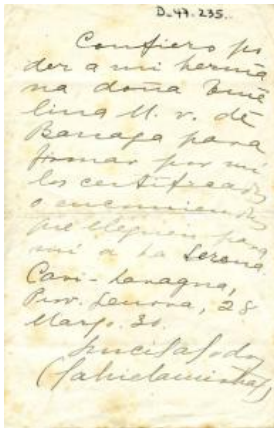 D-47-235.
Confiero po
der a mi herma
na doña Eme
lina M. v. de
Barraza para
firmar por mi
los certificados
o encomiendas
que lleguen para
mi a La Serena.
Cavi-Lavagna,
Prov. Genova, 28
Marzo. 30.
Lucila Godoy
(Gabriela Mistral)